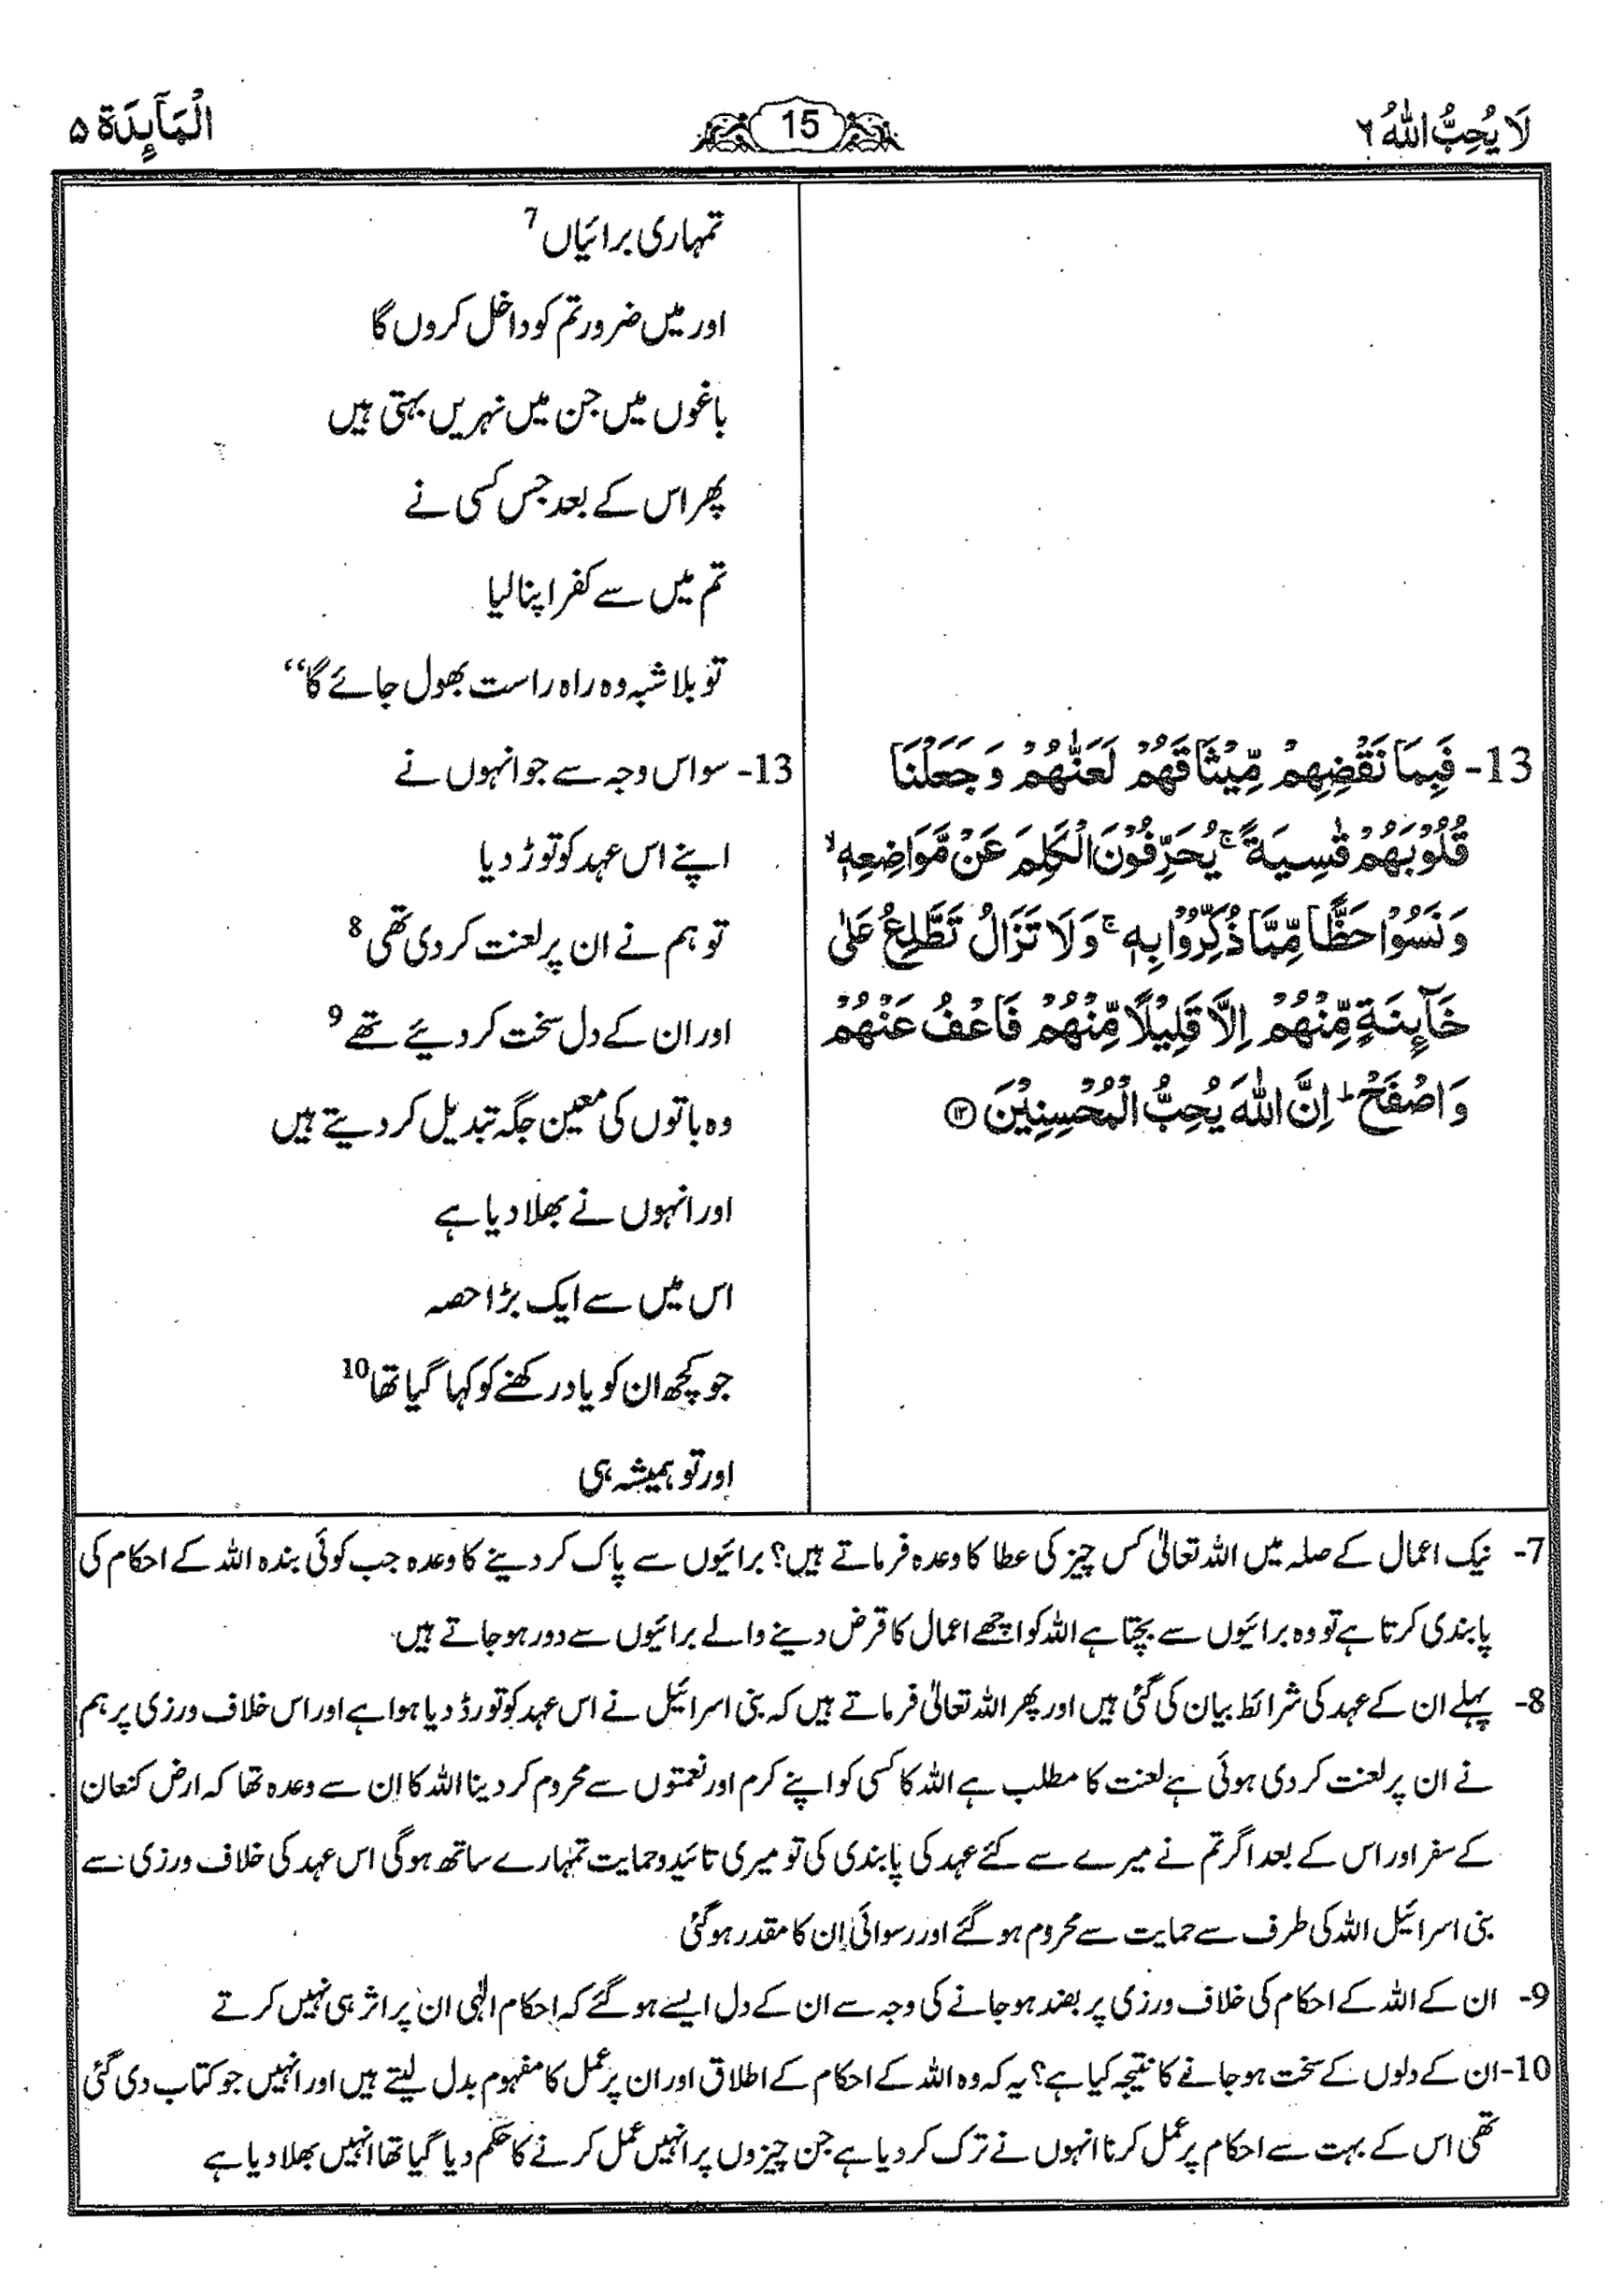 لَا يُحِبُّ اللّٰهُ ٦
15
الْمَآئِدَة ۵
13- فَبِمَا نَقْضِهِمْ مِّيْثَاقَهُمْ لَعَنّٰهُمْ وَجَعَلْنَا
قُلُوْبَهُمْ قٰسِيَةً ۚ يُحَرِّفُوْنَ الْكَلِمَ عَنْ مَّوَاضِعِهٖ ۙ
وَنَسُوْا حَظًّا مِّمَّا ذُكِّرُوْا بِهٖ ۚ وَلَا تَزَالُ تَطَّلِعُ عَلٰى
خَآئِنَةٍ مِّنْهُمْ اِلَّا قَلِيْلًا مِّنْهُمْ فَاعْفُ عَنْهُمْ
وَاصْفَحْ ؕ اِنَّ اللّٰهَ يُحِبُّ الْمُحْسِنِيْنَ ۱۳
تمہاری برائیاں 7
اور میں ضرور تم کو داخل کروں گا
باغوں میں جن میں نہریں بہتی ہیں
پھر اس کے بعد جس کسی نے
تم میں سے کفر اپنا لیا
تو بلا شبہ وہ راہ راست بھول جائے گا“
13- سو اس وجہ سے جو انہوں نے
اپنے اس عہد کو توڑ دیا
تو ہم نے ان پر لعنت کر دی تھی 8
اور ان کے دل سخت کر دیئے تھے 9
وہ باتوں کی معین جگہ تبدیل کر دیتے ہیں
اور انہوں نے بھلا دیا ہے
اس میں سے ایک بڑا حصہ
جو کچھ ان کو یاد رکھنے کو کہا گیا تھا 10
اور تو ہمیشہ ہی
7- نیک اعمال کے صلہ میں اللہ تعالیٰ کس چیز کی عطا کا وعدہ فرماتے ہیں؟ برائیوں سے پاک کر دینے کا وعدہ جب کوئی بندہ اللہ کے احکام کی
پابندی کرتا ہے تو وہ برائیوں سے بچتا ہے اللہ کو اچھے اعمال کا قرض دینے والے برائیوں سے دور ہو جاتے ہیں
8- پہلے ان کے عہد کی شرائط بیان کی گئی ہیں اور پھر اللہ تعالیٰ فرماتے ہیں کہ بنی اسرائیل نے اس عہد کو توڑ دیا ہوا ہے اور اس خلاف ورزی پر ہم
نے ان پر لعنت کر دی ہوئی ہے لعنت کا مطلب ہے اللہ کا کسی کو اپنے کرم اور نعمتوں سے محروم کر دینا اللہ کا اِن سے وعدہ تھا کہ ارض کنعان
کے سفر اور اس کے بعد اگر تم نے میرے سے کئے عہد کی پابندی کی تو میری تائید و حمایت تمہارے ساتھ ہوگی اس عہد کی خلاف ورزی سے
بنی اسرائیل اللہ کی طرف سے حمایت سے محروم ہو گئے اور رسوائی اِن کا مقدر ہو گئی
9- ان کے اللہ کے احکام کی خلاف ورزی پر بضد ہو جانے کی وجہ سے ان کے دل ایسے ہو گئے کہ احکام الٰہی ان پر اثر ہی نہیں کرتے
10- ان کے دلوں کے سخت ہو جانے کا نتیجہ کیا ہے؟ یہ کہ وہ اللہ کے احکام کے اطلاق اور ان پر عمل کا مفہوم بدل لیتے ہیں اور انہیں جو کتاب دی گئی
تھی اس کے بہت سے احکام پر عمل کرنا انہوں نے ترک کر دیا ہے جن چیزوں پر انہیں عمل کرنے کا حکم دیا گیا تھا انہیں بھلا دیا ہے